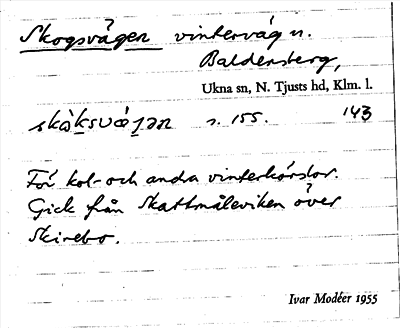 Skogsvägen vinterväg n.
Baldersberg,
Ukna sn, N. Tjusts hd, Klm. l.
skàksvá̱jən s. 155. 143
För kol- och andra vinterkörslor.
Gick från Skattmåleviken över
Skirebo.
Ivar Modéer 1955